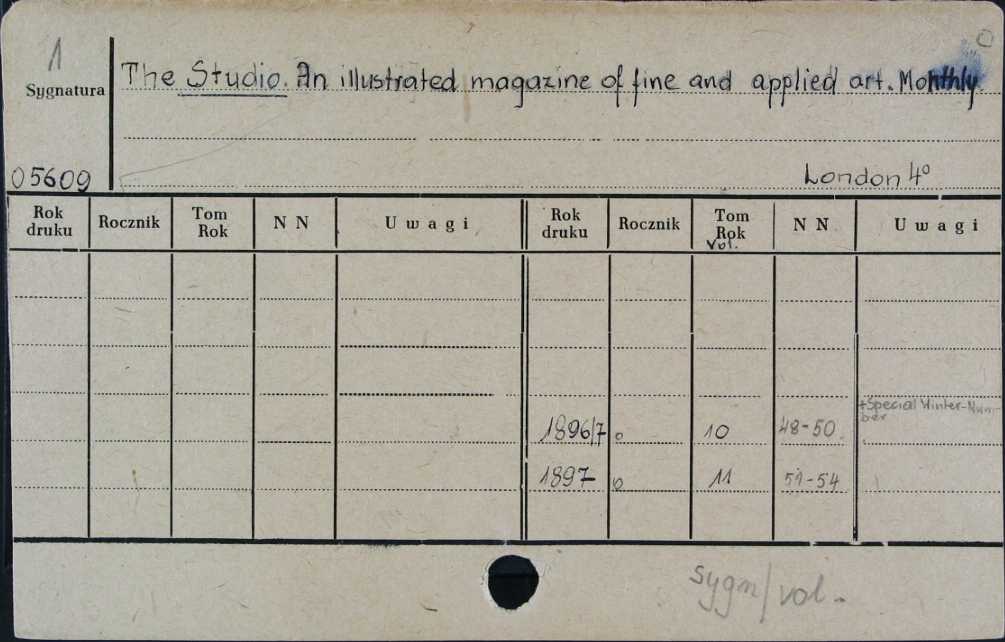 1
Sygnatura
The Studio. An illustrated magazine of fine and applied art. Monthly
05609
London 4°
Rok druku Rocznik Tom Rok N N Uwagi Rok druku Rocznik Tom Rok Vol. N N Uwagi
+Special Winter-Num-
ber
1896/7 o 10 48-50.
1897 o 11 51-54
sygn/vol.